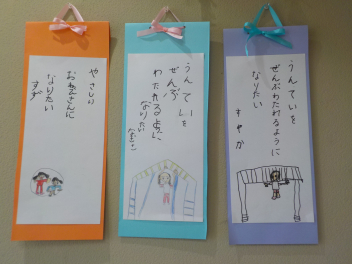 やさしい
おねえさんに
なりたい
すず
うんていを
ぜんぶ
わたれるように
なりたい
うんていを
ぜんぶわたれるように
なりたい